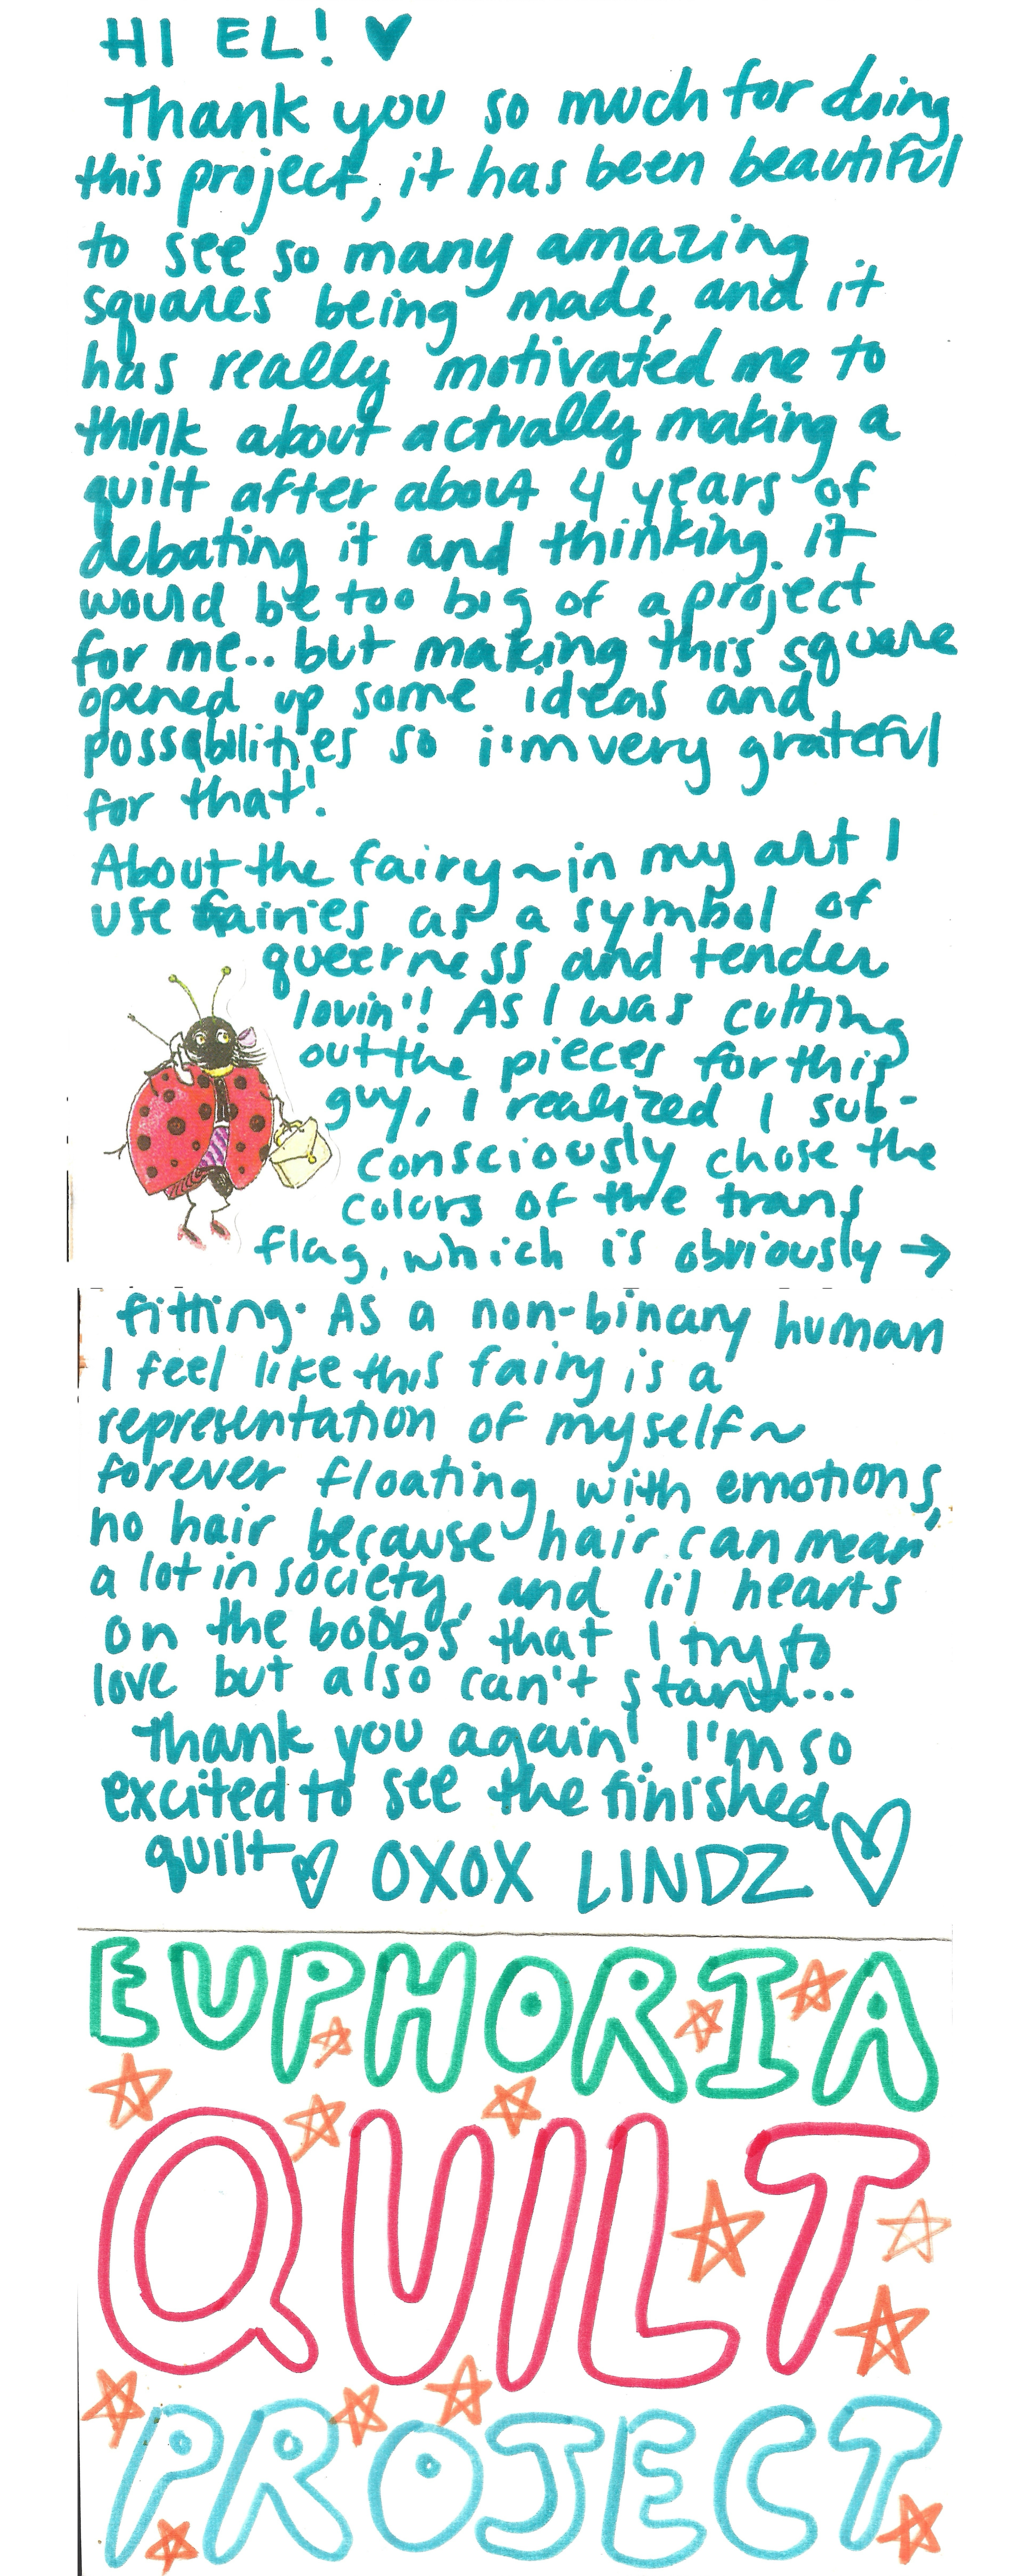 HI EL! ♥
Thank you so much for doing
this project, it has been beautiful
to see so many amazing
squares being made, and it
has really motivated me to
think about actually making a
quilt after about 4 years of
debating it and thinking it
would be too big of a project
for me.. but making this square
opened up some ideas and
possabilities so i'm very grateful
for that!
About the fairy ~ in my art I
use fairies as a symbol of
queerness and tender
lovin'! As I was cutting
out the pieces for this
guy, I realized I sub-
consciously chose the
colors of the trans
flag, which is obviously →
fitting. As a non-binary human
I feel like this fairy is a
representation of myself ~
forever floating with emotions,
no hair because hair can mean
a lot in society, and lil hearts
on the boobs that I try to
love but also can't stand...
Thank you again! I'm so
excited to see the finished
quilt ♡ OXOX LINDZ ♡
EUPHORIA
QUILT
PROJECT